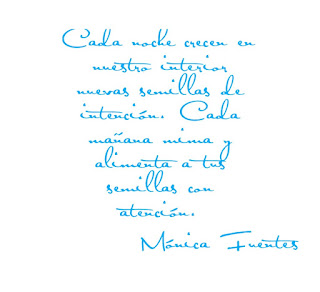 Cada noche crecen en
nuestro interior
nuevas semillas de
intención. Cada
mañana mima y
alimenta a tus
semillas con
atención.
Mónica Fuentes